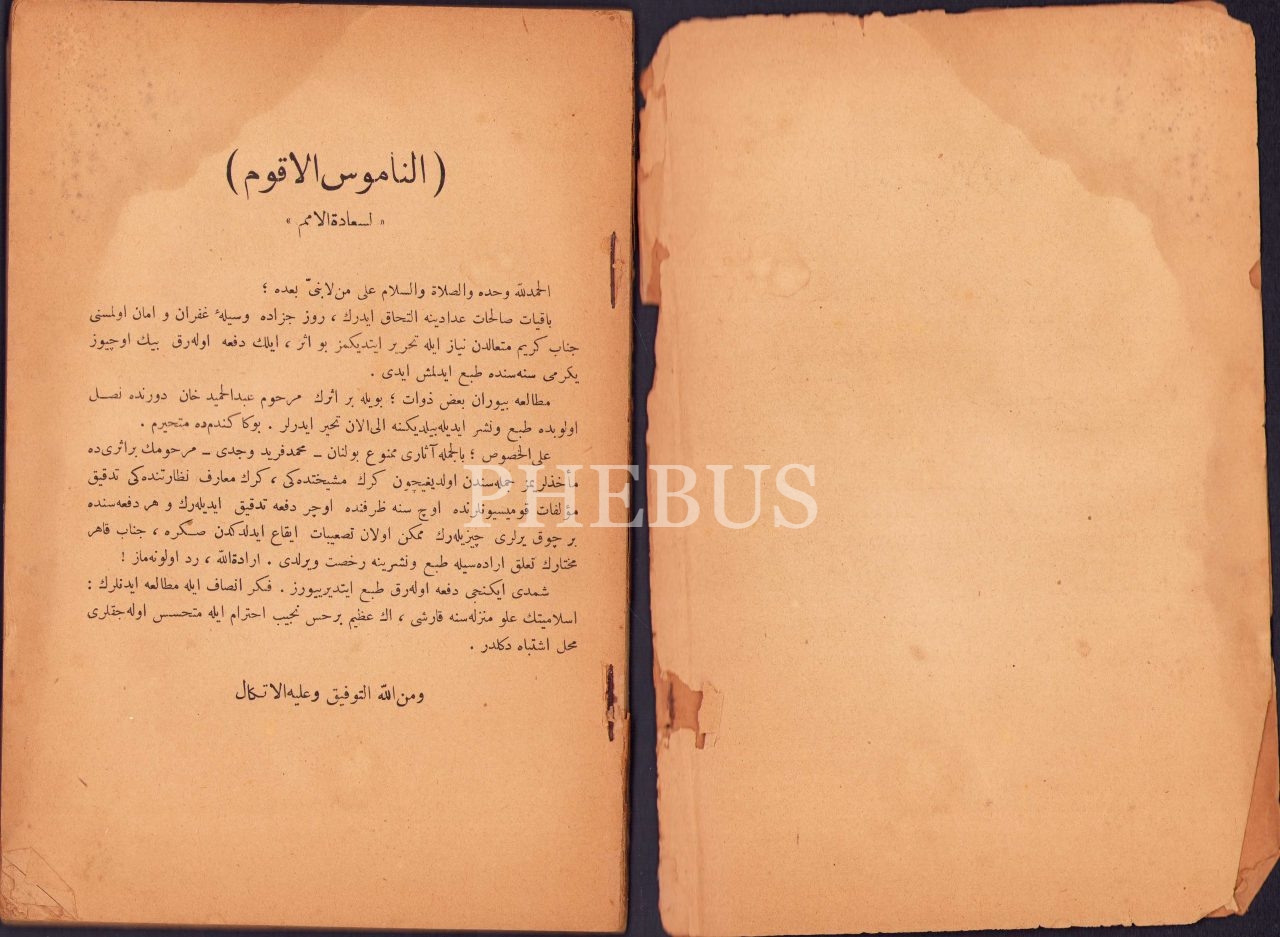 ( الناموس الاقوم )
« لسعادة الامم »
الحمدلله وحده والصلاة والسلام على من لانبىّ بعده ؛
باقيات صالحات عدادينه التحاق ايدرك ، روز جزاده وسيلهٔ غفران و امان اولمسنى
جناب كريم متعالدن نياز ايله تحرير ايتديكمز بو اثر ، ايلك دفعه اوله‌رق بيك اوچيوز
يكرمى سنه‌سنده طبع ايدلمش ايدى .
مطالعه بيوران بعض ذوات ؛ بويله بر اثرك مرحوم عبدالحميد خان دورنده نصل
اولوبده طبع ونشر ايديله‌بيلديكنه الى‌الان تحير ايدرلر . بوكا كندم‌ده متحيرم .
على‌الخصوص ؛ بالجمله آثارى ممنوع بولنان ـ محمدفريد وجدى ـ مرحومك براثرى‌ده
مأخذلريمز جمله‌سندن اولديغيچون كرك مشيختده‌كى ، كرك معارف نظارتنده‌كى تدقيق
مؤلفات قوميسيونلرنده اوچ سنه ظرفنده اوچر دفعه تدقيق ايديله‌رك و هر دفعه‌سنده
بر چوق يرلرى چيزيله‌رك ممكن اولان تصعيبات ايقاع ايدلدكدن صكره ، جناب قاهر
مختارك تعلق اراده‌سيله طبع ونشرينه رخصت ويرلدى . ارادةالله ، رد اولونه‌ماز !
شمدى ايكنجى دفعه اوله‌رق طبع ايتديرييورز . فكر انصاف ايله مطالعه ايدنلرك :
اسلاميتك علو منزله‌سنه قارشى ، اك عظيم برحس نجيب احترام ايله متحسس اوله‌جقلرى
محل اشتباه دكلدر .
ومن‌الله التوفيق وعليه‌الاتكال
PHEBUS